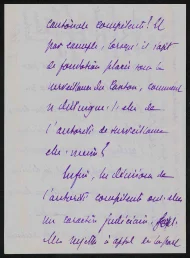 cantonale compétente? Et
par exemple, lorsqu'il s'agit
de fondation placée sous la
surveillance du Canton, comment
se distingue-t-elle de
l'autorité de surveillance
elle-même?
Enfin, les décisions de
l'autorité compétente ont-elles
un caractère judiciaire,
elles sujettes à appel en